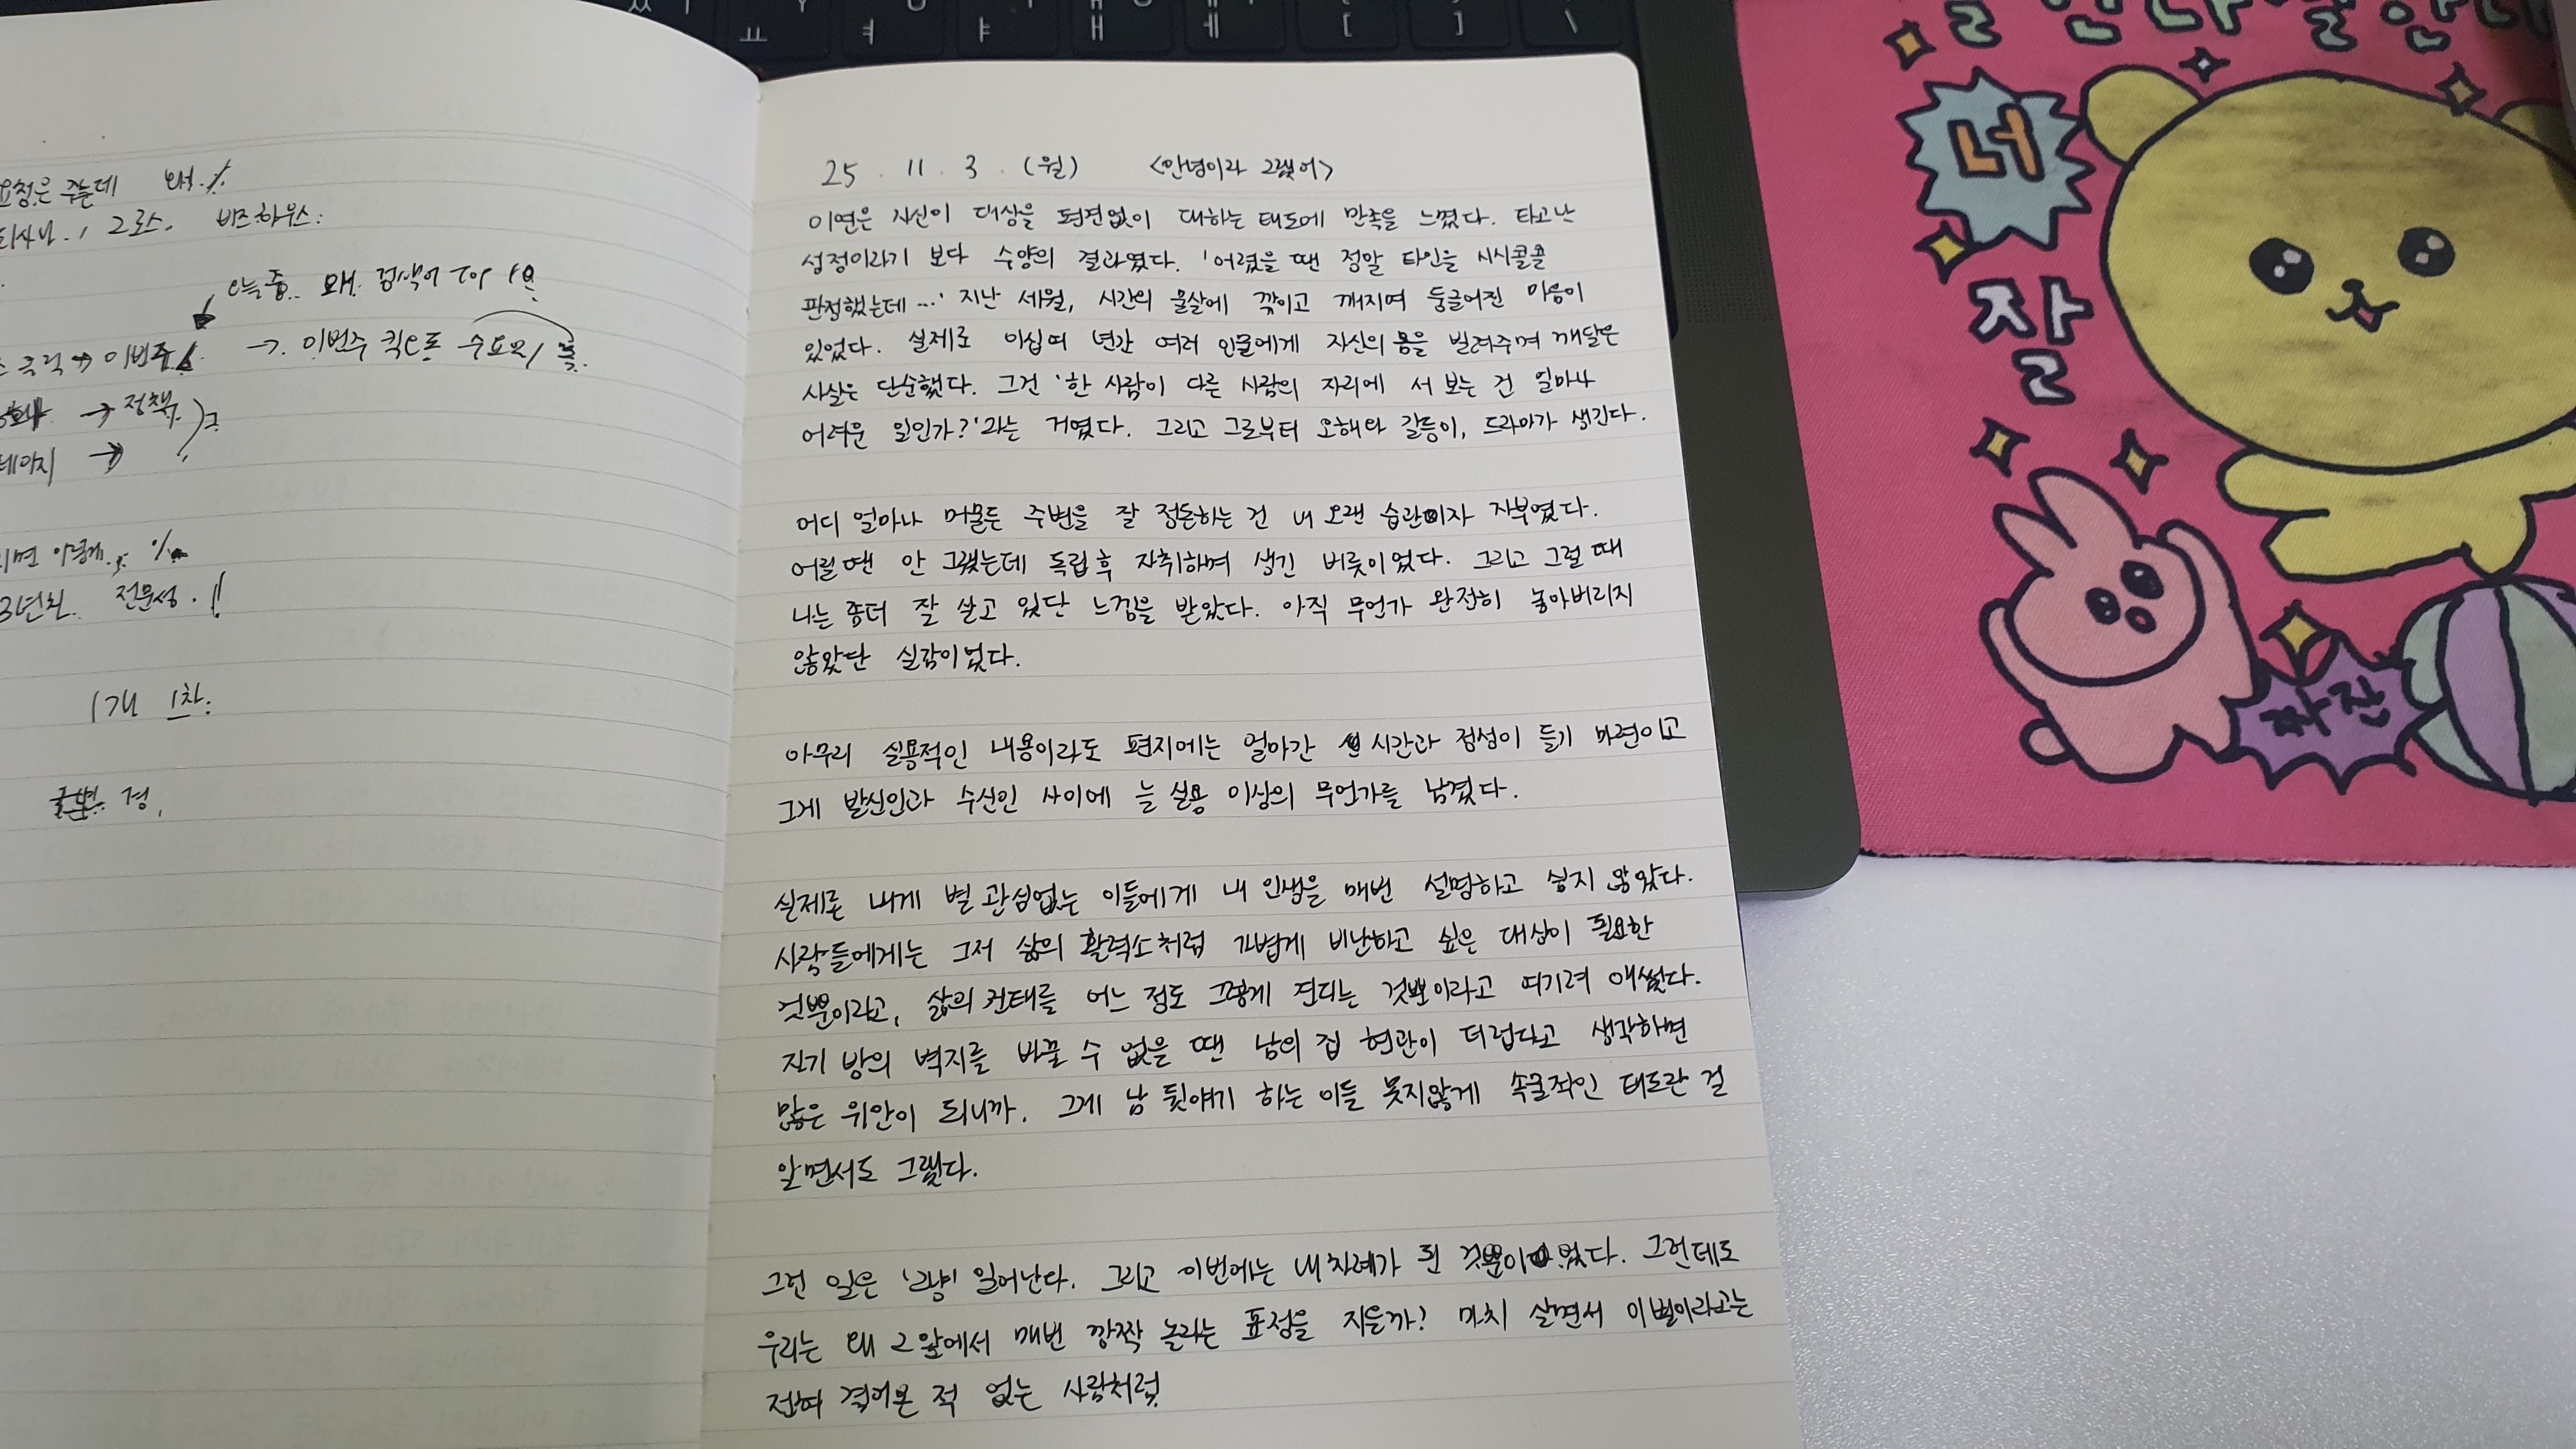 요청은 주는데 왜.
그로스. 비즈하우스.
오늘중. 왜. 검색어 top 10
클릭 → 이번주 → 이번주 수요일
→ 정책
페이지 →
3년차. 전문성.!!
1개 1차.
경,
25. 11. 3. (월) <안녕이라 그랬어>
이연은 자신이 대상을 편견없이 대하는 태도에 만족을 느꼈다. 타고난
성정이라기 보다 수양의 결과였다. '어렸을 땐 정말 타인을 시시콜콜
판정했는데…' 지난 세월, 시간의 물살에 깎이고 깨지며 둥글어진 마음이
있었다. 실제로 이십여 년간 여러 인물에게 자신의 몸을 빌려주며 깨달은
사실은 단순했다. 그건 '한 사람이 다른 사람의 자리에 서 보는 건 얼마나
어려운 일인가?'라는 거였다. 그리고 그로부터 오해와 갈등이, 드라마가 생긴다.
어디 얼마나 머물든 주변을 잘 정돈하는 건 내 오랜 습관이자 자부였다.
어릴 땐 안 그랬는데 독립 후 자취하며 생긴 버릇이었다. 그리고 그럴 때
나는 좀더 잘 살고 있단 느낌을 받았다. 아직 무언가 완전히 놓아버리지
않았단 실감이었다.
아무리 실용적인 내용이라도 편지에는 얼마간 시간과 정성이 들기 마련이고
그게 발신인과 수신인 사이에 늘 실용 이상의 무언가를 남겼다.
실제론 내게 별 관심없는 이들에게 내 인생을 매번 설명하고 싶지 않았다.
사람들에게는 그저 삶의 활력소처럼 가볍게 비난하고 싶은 대상이 필요한
것뿐이라고, 삶의 권태를 어느 정도 그렇게 견디는 것뿐이라고 여기려 애썼다.
자기 방의 벽지를 바꿀 수 없을 땐 남의 집 현관이 더럽다고 생각하면
많은 위안이 되니까. 그게 남 뒷얘기 하는 이들 못지않게 속물적인 태도란 걸
알면서도 그랬다.
그런 일은 '그냥' 일어난다. 그리고 이번에는 내 차례가 된 것뿐이었다. 그런데도
우리는 왜 그 앞에서 매번 깜짝 놀라는 표정을 지을까? 마치 살면서 이별이라고는
전혀 겪어본 적 없는 사람처럼
ㅛ ㅕ ㅑ ㅐ ㅔ [ ] \
너
잘
짜잔